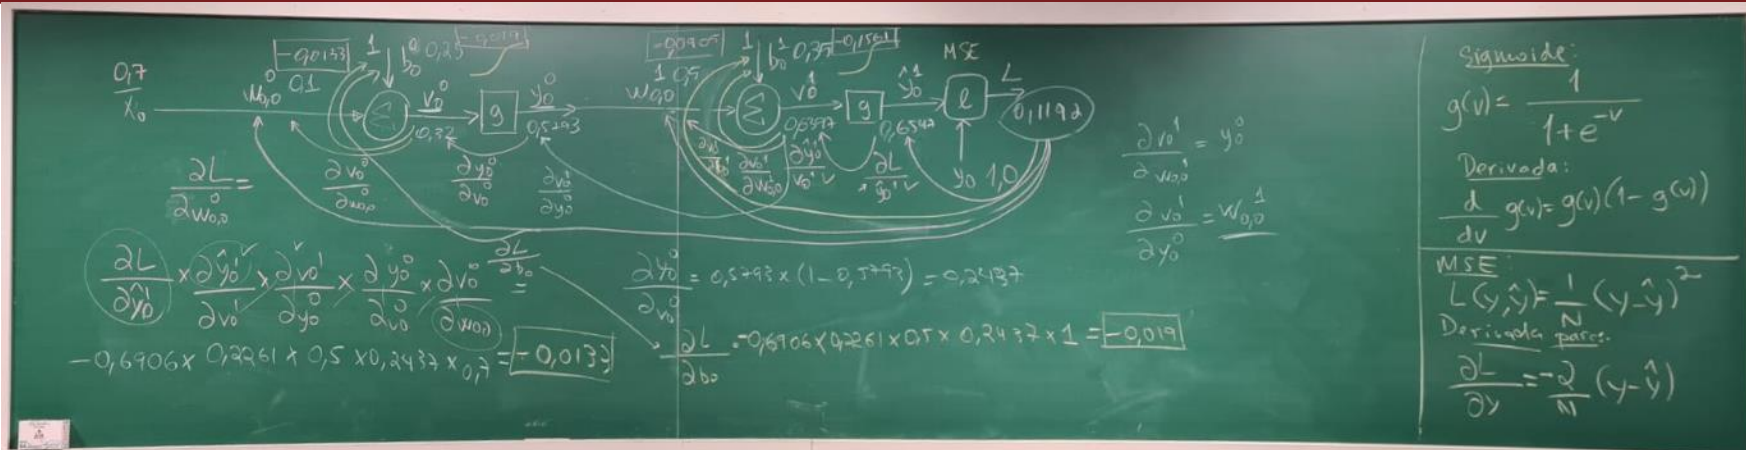 -0,0133 1 b₀⁰ 0,25 -0,019
-0,0905 1 b₀¹ 0,35 -0,1561 MSE
0,7
x₀ w₀,₀⁰ 0,1 Σ v₀⁰ 0,32 g y₀⁰ 0,5793 w₀,₀¹ 0,5 Σ v₀¹ 0,6397 g ŷ₀¹ 0,6547 ℓ L 0,1192
y₀ 1,0
∂L/∂w₀,₀⁰ =
∂v₀⁰/∂w₀,₀⁰ ∂y₀⁰/∂v₀⁰ ∂v₀¹/∂y₀⁰ ∂v₀¹/∂w₀,₀¹ ∂ŷ₀¹/v₀¹ ✓ ∂L/ŷ₀¹ ✓
∂L/∂ŷ₀¹ × ∂ŷ₀¹/∂v₀¹ × ∂v₀¹/∂y₀⁰ × ∂y₀⁰/∂v₀⁰ × ∂v₀⁰/∂w₀,₀ =
-0,6906 × 0,2261 × 0,5 × 0,2437 × 0,7 = -0,0133
∂L/∂b₀
∂y₀⁰/∂v₀⁰ = 0,5793 × (1 - 0,5793) = 0,2437
∂L/∂b₀ = -0,6906 × 0,2261 × 0,5 × 0,2437 × 1 = -0,019
∂v₀¹/∂w₀,₀¹ = y₀⁰
∂v₀¹/∂y₀⁰ = w₀,₀¹
Sigmoide:
g(v) = 1/(1+e^-v)
Derivada:
d/dv g(v) = g(v)(1 - g(v))
MSE:
L(y,ŷ) = 1/N (y-ŷ)²
Derivada parc.
∂L/∂y = -2/N (y-ŷ)